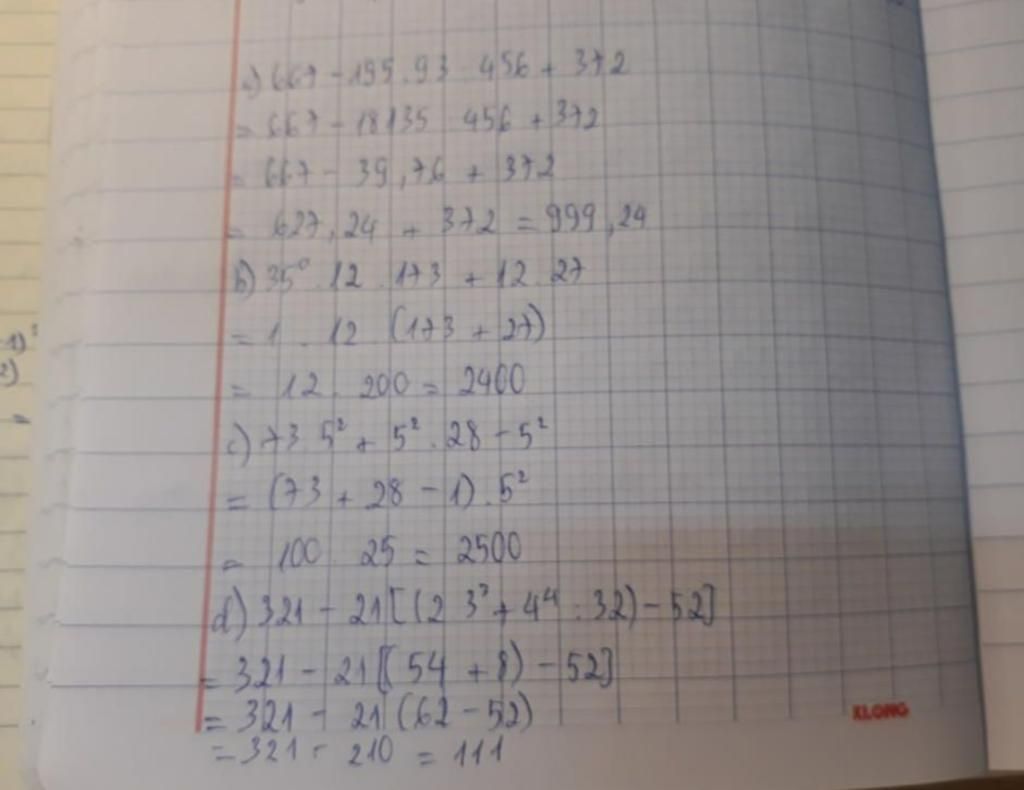 a) 667 - 195.93 456 + 372
= 667 - 18135 456 + 372
= 667 - 39,76 + 372
= 627,24 + 372 = 999,24
b) 35⁰.12.173 + 12.27
= 1. 12 (173 + 27)
= 12. 200 = 2400
c) 73 5² + 5².28 - 5²
= (73 + 28 - 1).5²
= 100 25 = 2500
d) 321 - 21[(2 3³ + 4⁴ : 32) - 52]
= 321 - 21[(54 + 8) - 52]
= 321 - 21 (62 - 52)
= 321 - 210 = 111
KLONG
1)
2)
=